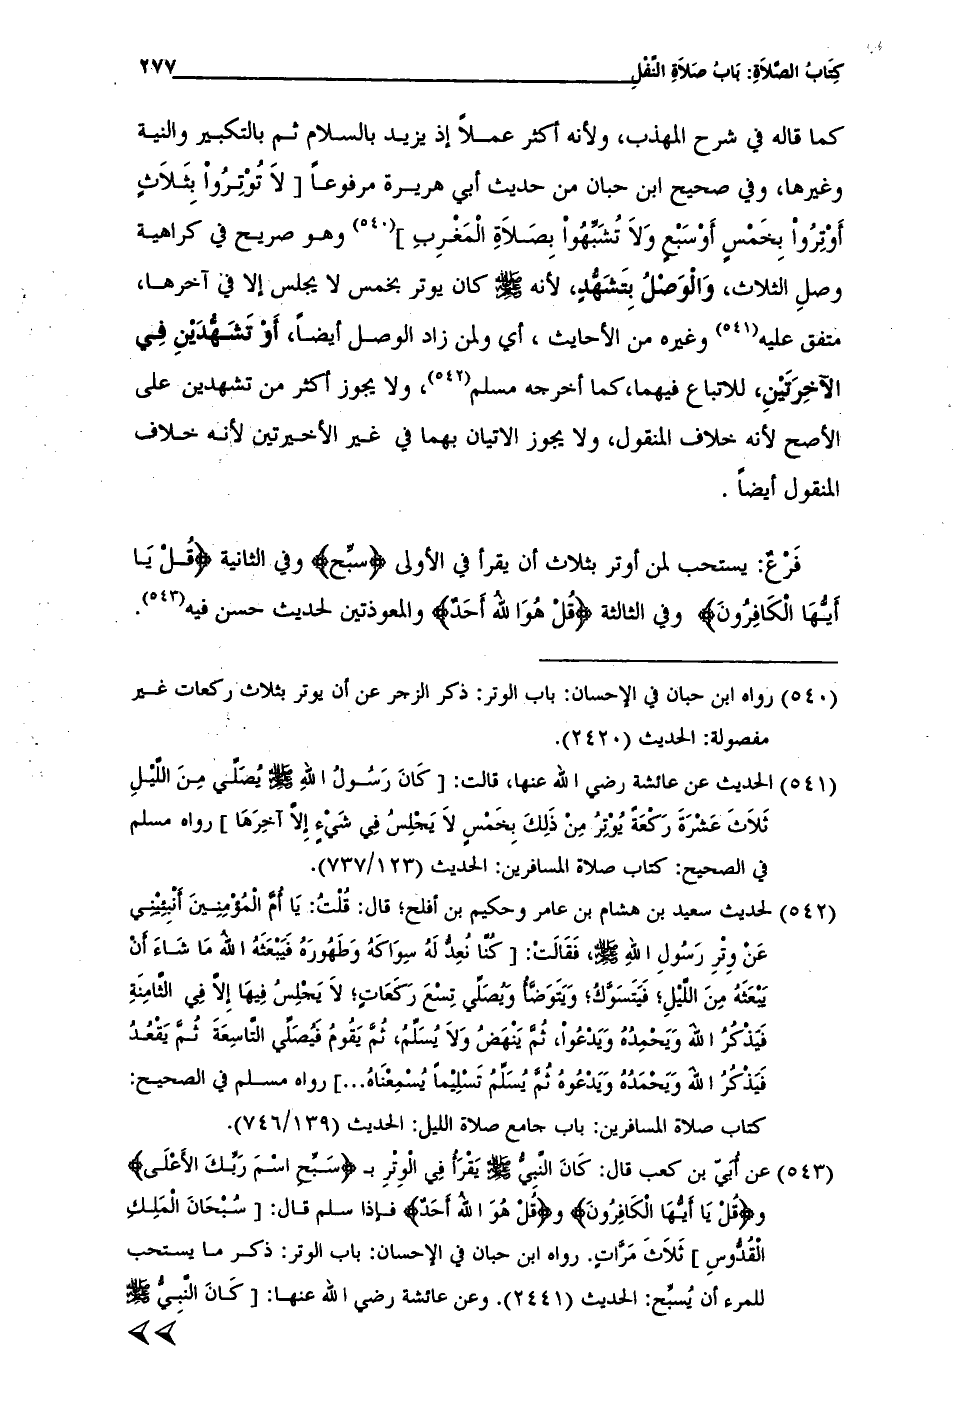 كِتَابُ الصَّلاَةِ: بَابُ صَلاَةِ النَّفْلِ ٢٧٧
كما قاله في شرح المهذب، ولأنه أكثر عمـلاً إذ يزيـد بالسـلام ثـم بالتكبـير والنية
وغيرها، وفي صحيح ابن حبان من حديث أبي هريـرة مرفوعـاً [ لاَ تُوْتِـرُواْ بِثَـلاَثٍ
أَوْتِرُواْ بِخَمْسٍ أَوْسَبْعٍ وَلاَ تُشَبِّهُواْ بِصَـلاَةِ الْمَغْرِبِ ](٥٤٠) وهـو صريـح في كراهيـة
وصلِ الثلاث، وَالْوَصْلُ بِتَشَهُّدٍ، لأنه ﷺ كان يوتر بخمس لا يجلس إلا في آخرهـا،
متفق عليه(٥٤١) وغيره من الأحايث ، أي ولمن زاد الوصـل أيضـاً، أَوْ تَشَـهُّدَيْنِ فِـي
الآخِرَتَيْنِ، للاتباع فيهما،كما أخرجه مسلم(٥٤٢)، ولا يجوز أكثر من تشهدين على
الأصح لأنه خلاف المنقول، ولا يجوز الاتيان بهما في غـير الأخـيرتين لأنـه خـلاف
المنقول أيضاً .
فَرْعٌ: يستحب لمن أوتر بثلاث أن يقرأ في الأولى ﴿سبِّح﴾ وفي الثانية ﴿قُـلْ يَـا
أَيُّـهَا الْكَافِرُونَ﴾ وفي الثالثة ﴿قُلْ هُوَا للهُ أَحَدٌ﴾ والمعوذتين لحديث حسن فيه(٥٤٣).
(٥٤٠) رواه ابن حبان في الإحسان: باب الوتر: ذكر الزجر عن أن يوتر بثلاث ركعات غـير
مفصولة: الحديث (٢٤٢٠).
(٥٤١) الحديث عن عائشة رضي الله عنها، قالت: [ كَانَ رَسُـولُ اللهِ ﷺ يُصَلِّـي مِـنَ اللَّيْلِ
ثَلاَثَ عَشْرَةَ رَكْعَةً يُوْتِرُ مِنْ ذَلِكَ بِخَمْسٍ لاَ يَجْلِسُ فِي شَيْءٍ إِلاَّ آخِرَهَا ] رواه مسلم
في الصحيح: كتاب صلاة المسافرين: الحديث (٧٣٧/١٢٣).
(٥٤٢) لحديث سعيد بن هشام بن عامر وحكيم بن أفلح؛ قال: قُلْتُ: يَا أُمَّ الْمُؤْمِنِـينَ أَنْبِئِيْنِي
عَنْ وِتْرِ رَسُولِ اللهِ ﷺ، فَقَالَتْ: [ كُنَّا نُعِدُّ لَهُ سِوَاكَهُ وَطَهُورَهُ فَيَبْعَثَهُ اللهُ مَا شَـاءَ أَنْ
يَبْعَثَهُ مِنَ اللَّيْلِ؛ فَيَتَسَوَّكُ؛ وَيَتَوَضَّأُ وَيُصَلِّي تِسْعَ رَكَعَاتٍ؛ لاَ يَجْلِسُ فِيهَا إِلاَّ فِي الثَّامِنَةِ
فَيَذْكُرُ اللهَ وَيَحْمِدُهُ وَيَدْعُواْ، ثُمَّ يَنْهَضُ وَلاَ يُسَلِّمُ، ثُمَّ يَقُومُ فَيُصَلِّي التَّاسِعَةَ ثُـمَّ يَقْعُـدُ
فَيَذْكُرُ اللهَ وَيَحْمَدُهُ وَيَدْعُوهُ ثُمَّ يُسَلِّمُ تَسْلِيماً يُسْمِعْنَاهُ...] رواه مسـلم في الصحيح:
كتاب صلاة المسافرين: باب جامع صلاة الليل: الحديث (٧٤٦/١٣٩).
(٥٤٣) عن أُبَيِّ بن كعب قال: كَانَ النَّبِيُّ ﷺ يَقْرَأُ فِي الْوِتْرِ بـ ﴿سَـبِّحِ اسْمَ رَبِّـكَ الأَعْلَـى﴾
و﴿قُلْ يَا أَيُّهَا الْكَافِرُونَ﴾ و﴿قُلْ هُوَ اللهُ أَحَدٌ﴾ فـإذا سـلم قـال: [ سُـبْحَانَ الْمَلِـكِ
الْقُدُّوسِ ] ثَلاَثَ مَرَّاتٍ. رواه ابن حبان في الإحسان: باب الوتر: ذكـر مـا يسـتحب
للمرء أن يُسبِّح: الحديث (٢٤٤١). وعن عائشة رضي الله عنهـا: [ كَـانَ النَّبِـيُّ ﷺ